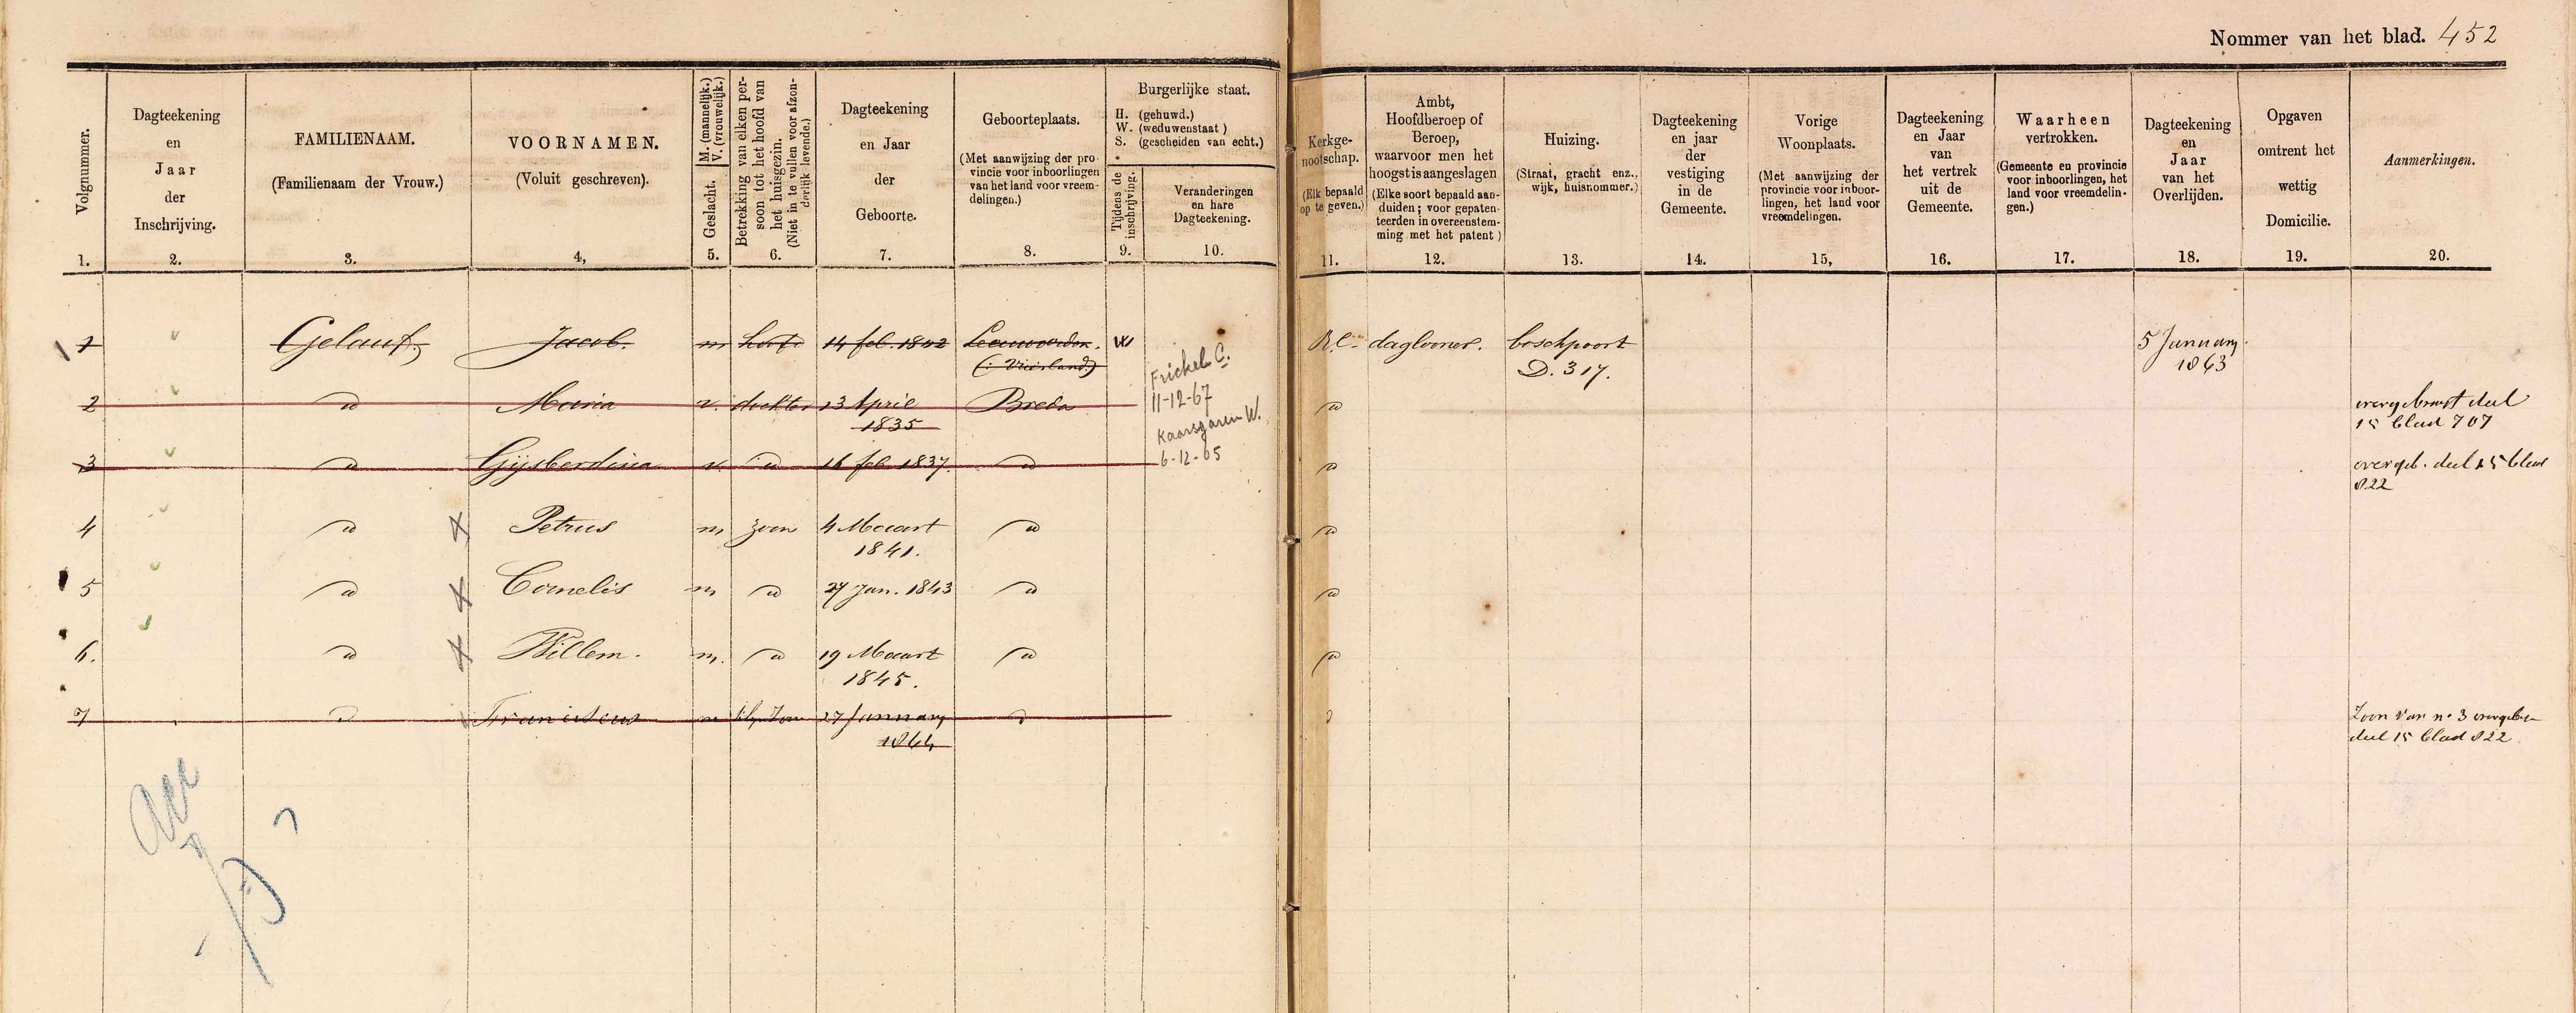 Nommer van het blad. 452
Volgnummer.
1.
Dagteekening
en
Jaar
der
Inschrijving.
2.
FAMILIENAAM.
(Familienaam der Vrouw.)
3.
VOORNAMEN.
(Voluit geschreven).
4,
Geslacht. M. (mannelijk.)
V. (vrouwelijk.)
5.
Betrekking van elken per-
soon tot het hoofd van
het huisgezin.
(Niet in te vullen voor afzon-
derlijk levende.)
6.
Dagteekening
en Jaar
der
Geboorte.
7.
Geboorteplaats.
(Met aanwijzing der pro-
vincie voor inboorlingen
van het land voor vreem-
delingen.)
8.
Burgerlijke staat.
H. (gehuwd.)
W. (weduwenstaat)
S. (gescheiden van echt.)
Tijdens de
inschrijving.
9.
Veranderingen
en hare
Dagteekening.
10.
Kerkge-
nootschap.
(Elk bepaald
op te geven.)
11.
Ambt,
Hoofdberoep of
Beroep,
waarvoor men het
hoogst is aangeslagen
(Elke soort bepaald aan-
duiden; voor gepaten-
teerden in overeenstem-
ming met het patent)
12.
Huizing.
(Straat, gracht enz.,
wijk, huisnommer.)
13.
Dagteekening
en jaar
der
vestiging
in de
Gemeente.
14.
Vorige
Woonplaats.
(Met aanwijzing der
provincie voor inboor-
lingen, het land voor
vreemdelingen.
15,
Dagteekening
en Jaar
van
het vertrek
uit de
Gemeente.
16.
Waarheen
vertrokken.
(Gemeente en provincie
voor inboorlingen, het
land voor vreemdelin-
gen.)
17.
Dagteekening
en
Jaar
van het
Overlijden.
18.
Opgaven
omtrent het
wettig
Domicilie.
19.
Aanmerkingen.
20.
1 Gelauf, Jacob. m hoofd 14 feb. 1802 Leeuwarden. W R.C. daglooner. boschpoort 5 January
(: Vriesland) D. 317. 1863
Frickel C.
11-12-67
2 d Maria v. dochter 13 April Breda d overgebragt deel
1835 15 blad 707
Kaarsgaren W.
6-12-65
3 d Gijsberdina v. d 16 feb. 1837. d d overgeb. deel 15 blad
822
4 d Petrus m zoon 4 Maart d d
1841.
5 d Cornelis m d 27 Jan. 1843 d d
6. d Willem. m. d 19 Maart d d
1845.
7 d Franciscus m 27 January d d Zoon van no 3 overgebr
1864 deel 15 blad 822